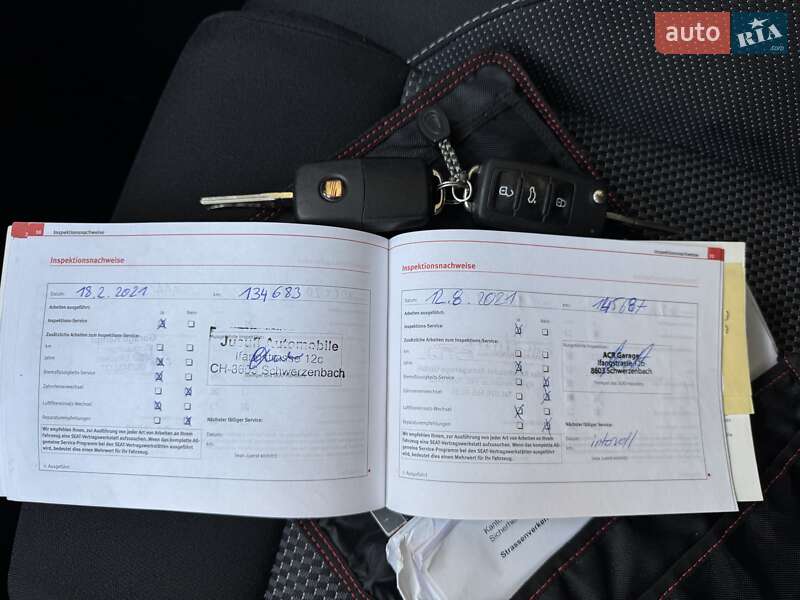 auto RIA.com
50 Inspektionsnachweise
Inspektionsnachweise
Datum: 18.2.2021 km: 134683
Arbeiten ausgeführt: Ja Nein
Inspektions-Service
Zusätzliche Arbeiten zum Inspektions-Service:
km
Jahre
Bremsflüssigkeits-Service
Zahnriemenwechsel
Luftfiltereinsatz-Wechsel
Reparaturempfehlungen
Automobile
12c
Schwerzenbach
Nächster fälliger Service:
Datum:
km:
(was zuerst eintritt)
Wir empfehlen Ihnen, zur Ausführung von jeder Art von Arbeiten an Ihrem
Fahrzeug eine SEAT-Vertragswerkstatt aufzusuchen. Wenn das komplette All-
gemeine Service-Programm bei den SEAT-Vertragswerkstätten ausgeführt
wird, bedeutet dies einen Mehrwert für Ihr Fahrzeug.
Ausgeführt
Inspektionsnachweise
Inspektionsnachweise
Datum: 12.8.2021 km: 145687
Arbeiten ausgeführt: Ja Nein
Inspektions-Service
Zusätzliche Arbeiten zum Inspektions-Service:
km
Jahre
Bremsflüssigkeits-Service
Zahnriemenwechsel
Luftfiltereinsatz-Wechsel
Reparaturempfehlungen
ACR Garage
Ifangstrasse 12b
8603 Schwerzenbach
Nächster fälliger Service:
Datum:
km:
(was zuerst eintritt)
Wir empfehlen Ihnen, zur Ausführung von jeder Art von Arbeiten an Ihrem
Fahrzeug eine SEAT-Vertragswerkstatt aufzusuchen. Wenn das komplette All-
gemeine Service-Programm bei den SEAT-Vertragswerkstätten ausgeführt
wird, bedeutet dies einen Mehrwert für Ihr Fahrzeug.
Ausgeführt
Strassenverkeh